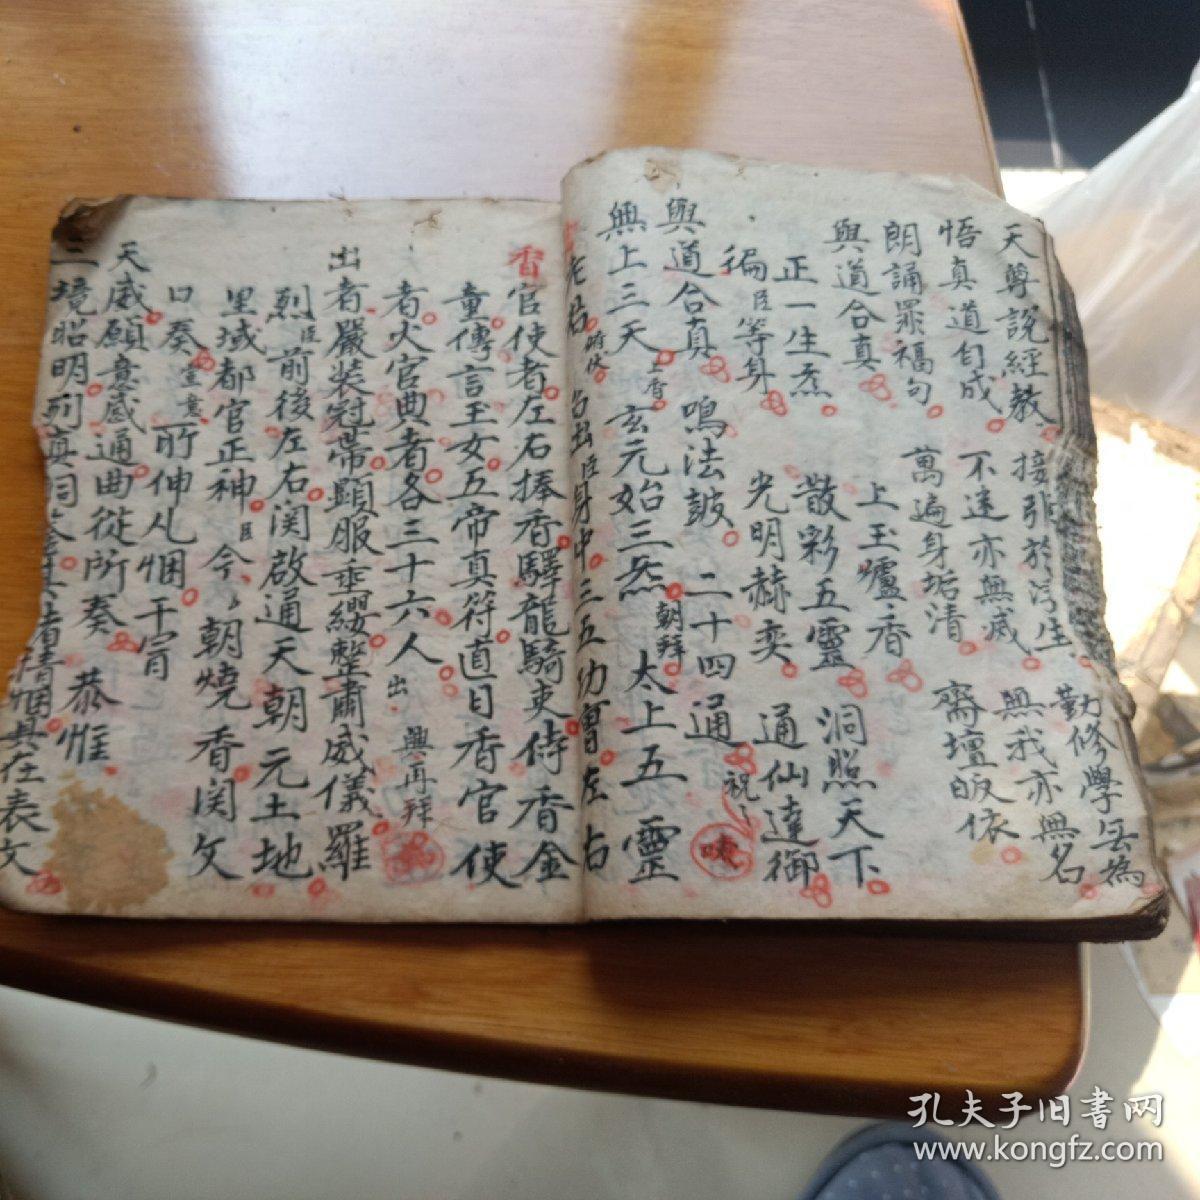 天尊說經教 接引於浮生 勤修學無為
悟真道自成 不迷亦無惑 無我亦無名
朗誦罪福句 萬遍身垢清 齋壇皈依
與道合真 上玉爐香 洞照天下
正一生炁 散彩五靈 通仙達御
徧臣等身 光明赫奕 祝
與道合真 鳴法鼓 二十四通
無上三天 上香 玄元始三炁 朝拜 太上五靈
老君 俯伏 召出臣身中三五功曹左右
香官使者左右捧香驛龍騎吏侍香金
童傳言玉女五帝真符直日香官使
者火官典者各三十六人 出 興再拜
出者嚴裝冠帶顯服垂纓整肅威儀羅
列臣前後左右関啟通天朝元土地
里域都官正神臣今朝燒香関文
口奏 宣意 所伸凡悃干冐
天威願意感通曲從所奏 恭惟
三境昭明列真洞 情悃具在表文
孔夫子旧书网
www.kongfz.com